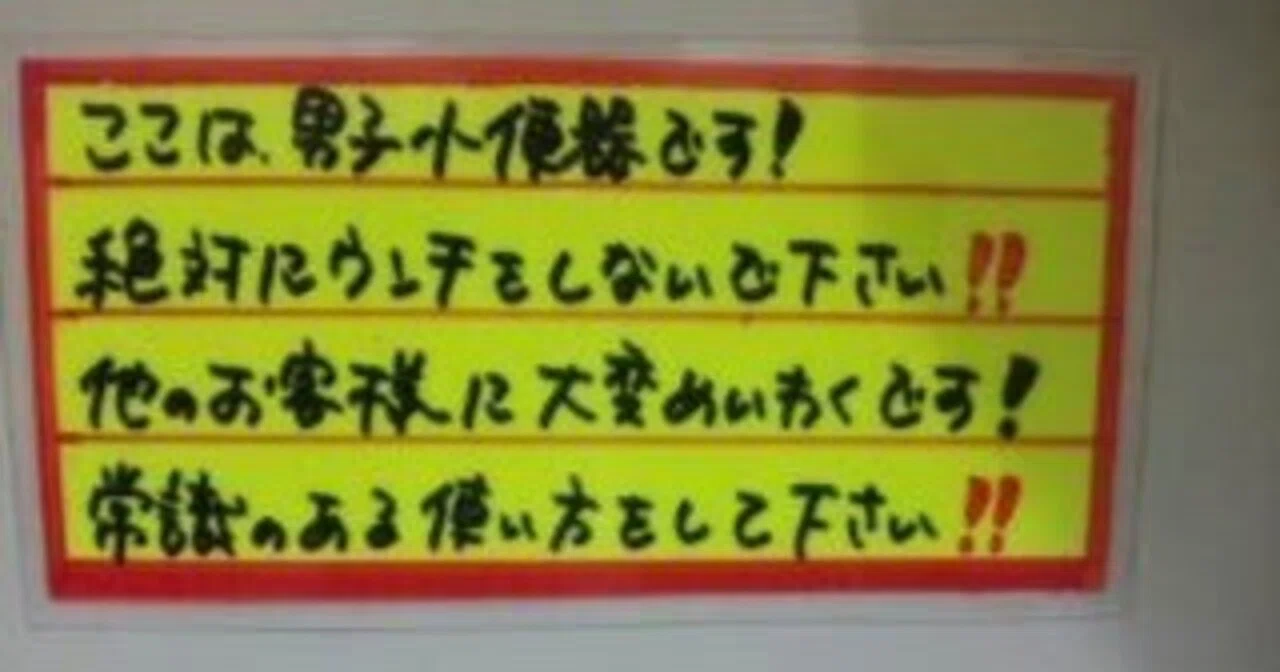 ここは、男子小便器です!
絶対にウンチをしないで下さい!!
他のお客様に大変めいわくです!
常識のある使い方をして下さい!!